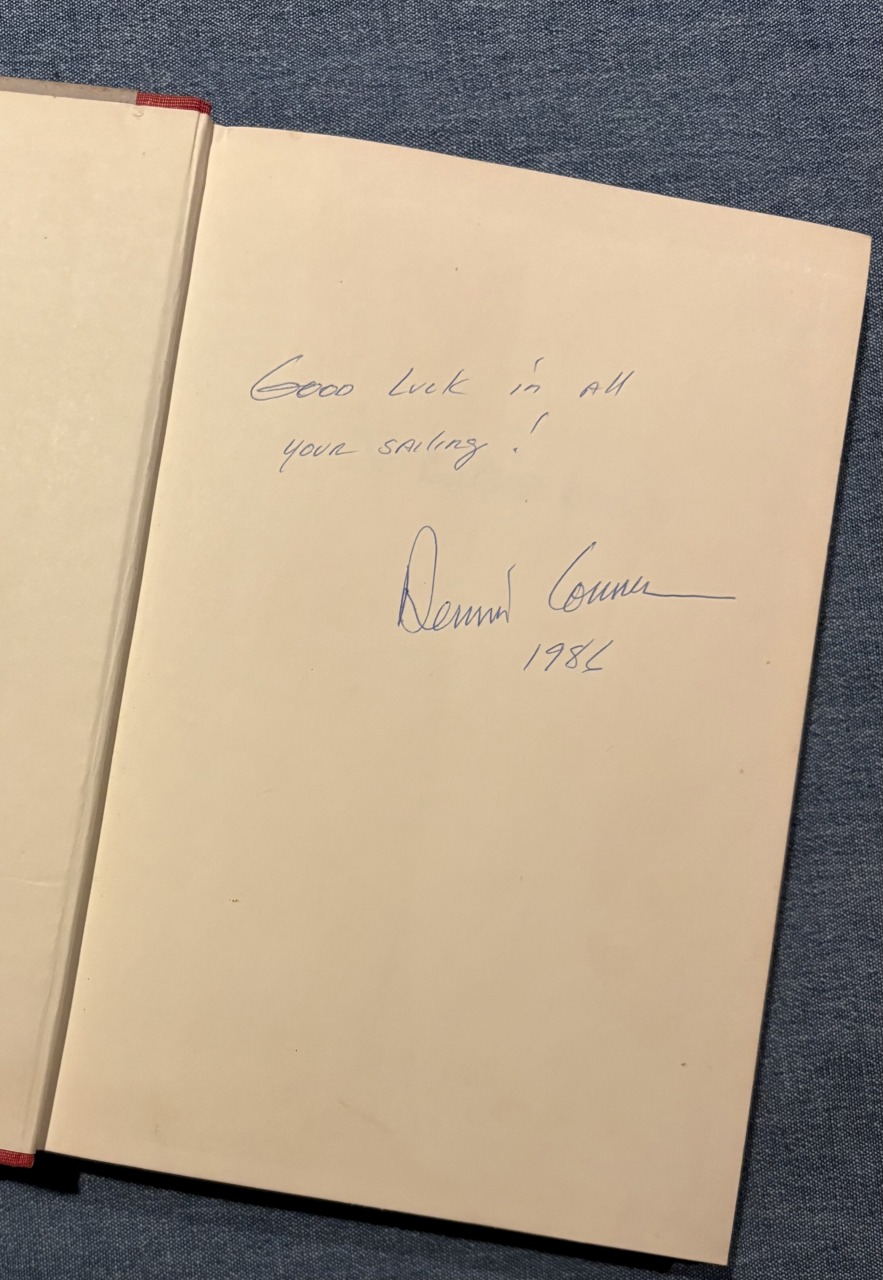 Good Luck in All
your sailing!
Dennis Conner
1986